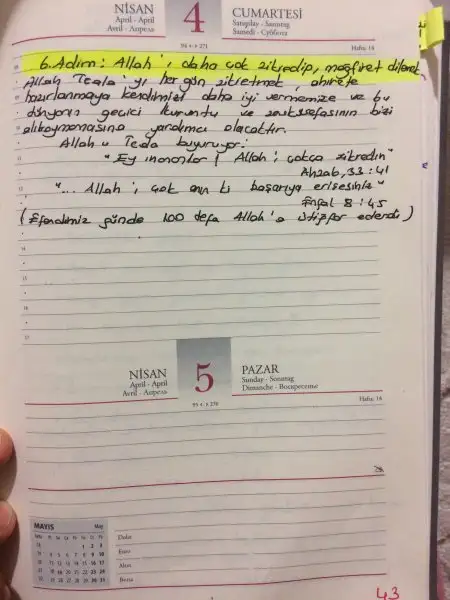 NİSAN
April - April
Avril - Апрель
4
CUMARTESİ
Saturday - Samstag
Samedi - Суббота
94 + - 271
Hafta: 14
6. Adım: Allah'ı daha çok zikredip, mağfiret dilemek
Allah Teala'yı her gün zikretmek, ahirete
hazırlanmaya kendimizi daha iyi vermemize ve bu
dünyanın geçici kuruntu ve zevksefasının bizi
alıkoymamasına yardımcı olacaktır.
Allahu Teala buyuruyor:
"Ey inananlar! Allah'ı çokça zikredin"
Ahzab, 33:41
"... Allah'ı çok anın ki başarıya erişesiniz"
Enfal 8:45
(Efendimiz günde 100 defa Allah'a istiğfar ederdi)
NİSAN
April - April
Avril - Апрель
5
PAZAR
Sunday - Sonntag
Dimanche - Воскресение
95 + - 270
Hafta: 14
MAYIS
May
Dolar
Euro
Altın
Borsa
43